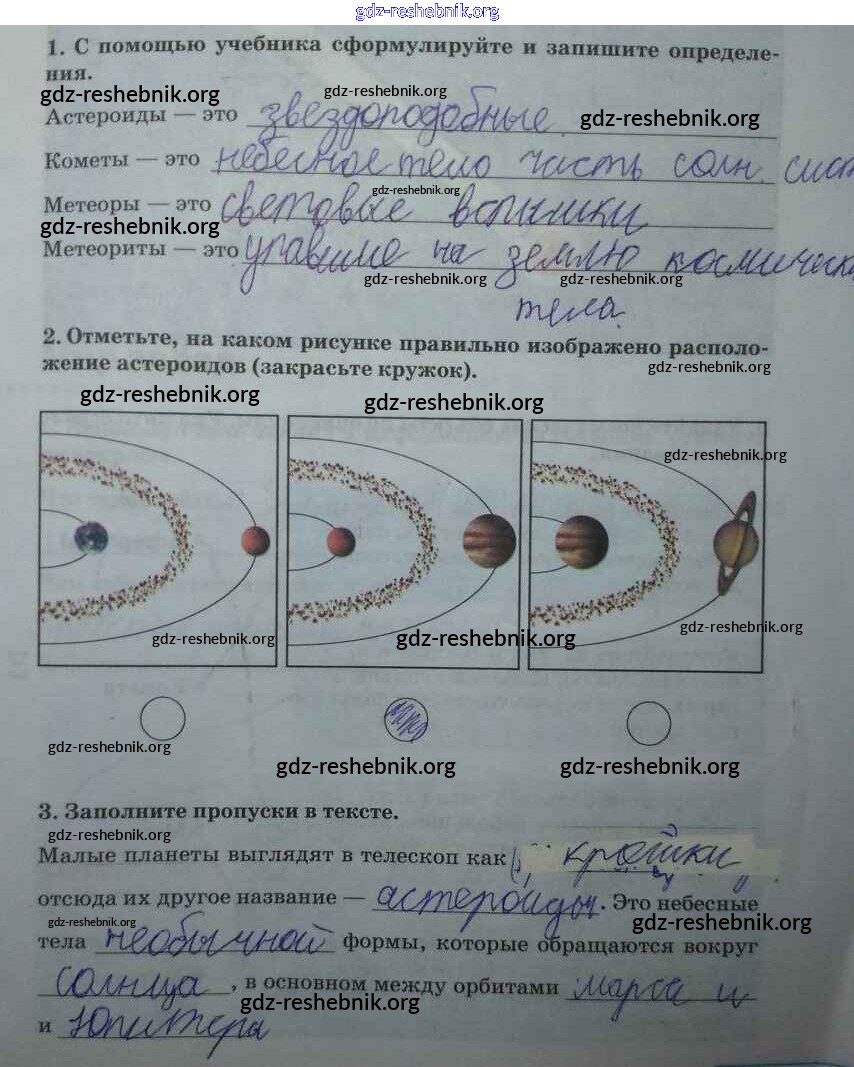 gdz-reshebnik.org
1. С помощью учебника сформулируйте и запишите определе-
ния.
gdz-reshebnik.org gdz-reshebnik.org
Астероиды — это звездоподобные. gdz-reshebnik.org
Кометы — это небесное тело часть солн. сист
gdz-reshebnik.org
Метеоры — это световые вспышки
gdz-reshebnik.org
Метеориты — это упавшие на землю космически
gdz-reshebnik.org gdz-reshebnik.org
тела.
2. Отметьте, на каком рисунке правильно изображено располо-
жение астероидов (закрасьте кружок).
gdz-reshebnik.org
gdz-reshebnik.org gdz-reshebnik.org
gdz-reshebnik.org
gdz-reshebnik.org gdz-reshebnik.org gdz-reshebnik.org
gdz-reshebnik.org
gdz-reshebnik.org gdz-reshebnik.org
3. Заполните пропуски в тексте.
gdz-reshebnik.org
Малые планеты выглядят в телескоп как крошки
отсюда их другое название — астероиды. Это небесные
gdz-reshebnik.org gdz-reshebnik.org
тела необычной формы, которые обращаются вокруг
солнца, в основном между орбитами марса и
gdz-reshebnik.org
и Юпитера